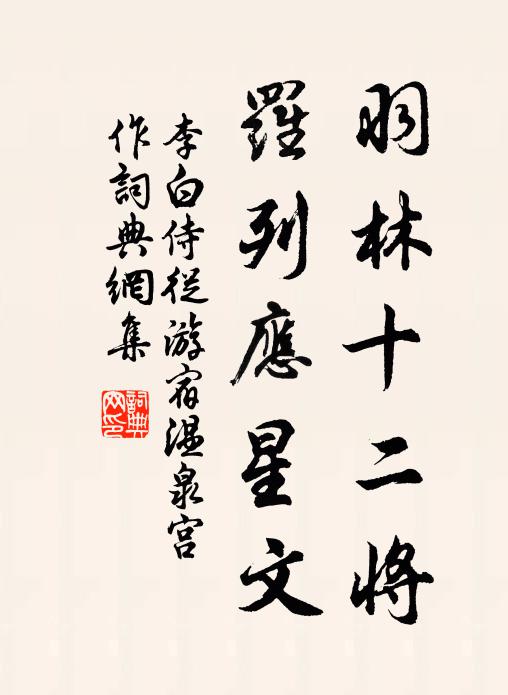 羽林十二將
羅列應星文
李白侍從游宿溫泉宮
作詞典網集
詞典
网印